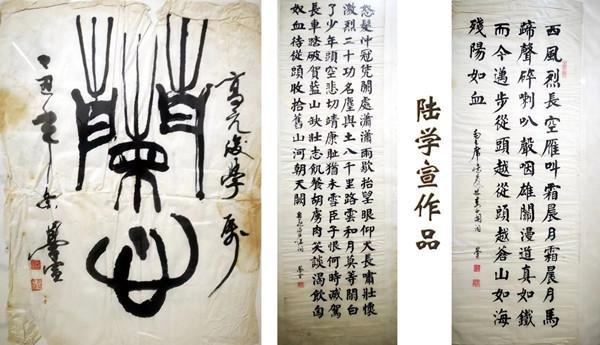 學宣
怒髮沖冠凭闌處瀟瀟雨歇抬望眼仰天長嘯壯懷
激烈三十功名塵與土八千里路雲和月莫等閑白
了少年頭空悲切靖康耻猶未雪臣子恨何時滅駕
長車踏破賀蘭山缺壯志飢餐胡虜肉笑談渴飲匈
奴血待從頭收拾舊山河朝天闕
陆学宣作品
西風烈長空雁叫霜晨月霜晨月馬
蹄聲碎喇叭聲咽雄關漫道真如鐵
而今邁步從頭越從頭越蒼山如海
殘陽如血